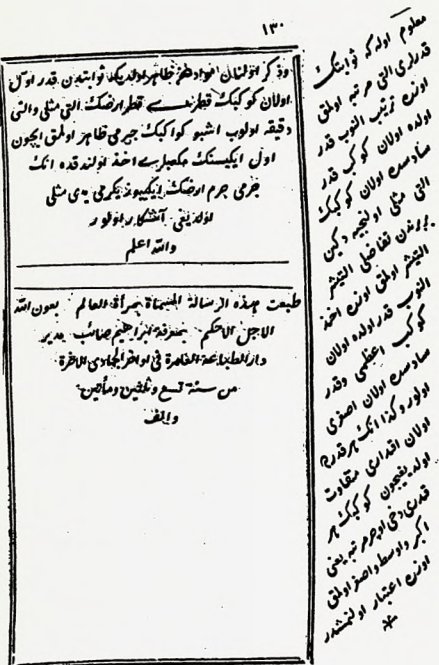 ١٣٠
وذكر اولنان اوزره ظاهر اولديكه ثوابتدن قدر اولدن
اولان كوكبك قطرى قطر ارضك التى مثلى والتى
دقيقه اولوب اشبو كواكبك جرمى ظاهر اولمق ايچون
اول ايكيسنك مكعبلرى اخذ اولندقده انك
جرمى جرم ارضك ايكيوز يكرمى يدى مثلى
اولديغى آشكار اولور
والله اعلم
طبعت هذه الرسالة المسماة بمرأة العالم بعون الله
الاجل الاحكم بمعرفة ابراهيم صائب مدير
دار الطباعة العامرة فى اواخر الجمادى الاخرة
من سنة تسع وثلثين ومأتين
والف
معلوم اوله كه ثوابتك
قدرلرى التى مرتبه اولمق
اوزره ترتيب اولنوب قدر
اولده اولان كوكب قدر
سادسده اولان كوكبك
التى مثلى اولنجيه دكين
بربرينه تفاضلى التيشر
التيشر اولمق اوزره اخذ
اولنوب قدر اولده اولان
كوكب اعظمى وقدر
سادسده اولان اصغرى
اولور وكذا انك هر قدرده
اولان اقدارى متفاوت
اولديغيچون كوكبك هر
قدرى دخى اوچر مرتبه يعنى
اكبر واوسط واصغر اولمق
اوزره اعتبار اولنمشدر